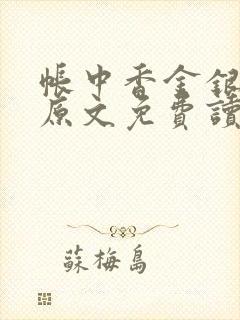 帳中香金銀
原文免費讀
蘇梅島